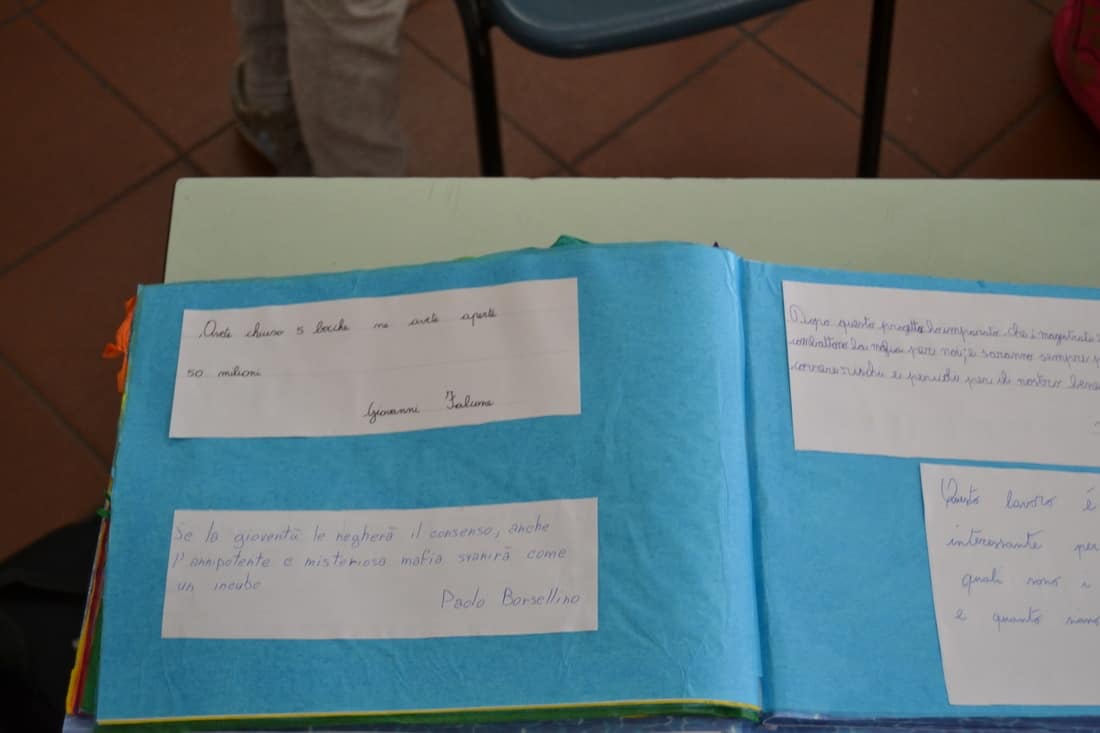 Avete chiuso 5 bocche ne avete aperte
50 milioni
Giovanni Falcone
Se la gioventù le negherà il consenso, anche
l'onnipotente e misteriosa mafia svanirà come
un incubo
Paolo Borsellino
Dopo questo progetto ho imparato che i magistrati
combattono la mafia per noi, e saranno sempre
correre rischi e pericoli per il nostro bene
Questo lavoro è
interessante per
quali sono
e quanto siano